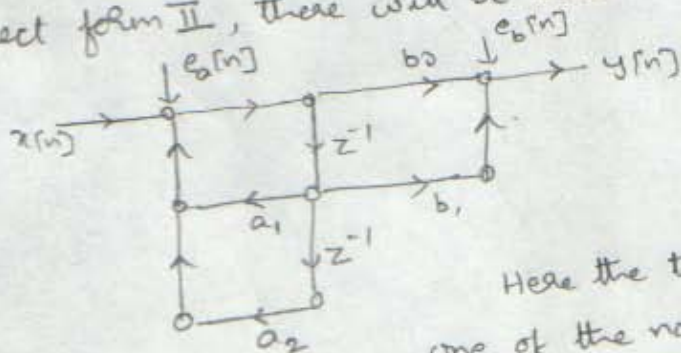 ect form II, there will be
e_a[n]
e_b[n]
b0
y[n]
x[n]
z⁻¹
a₁
b₁
z⁻¹
Here the t
a₂
one of the no